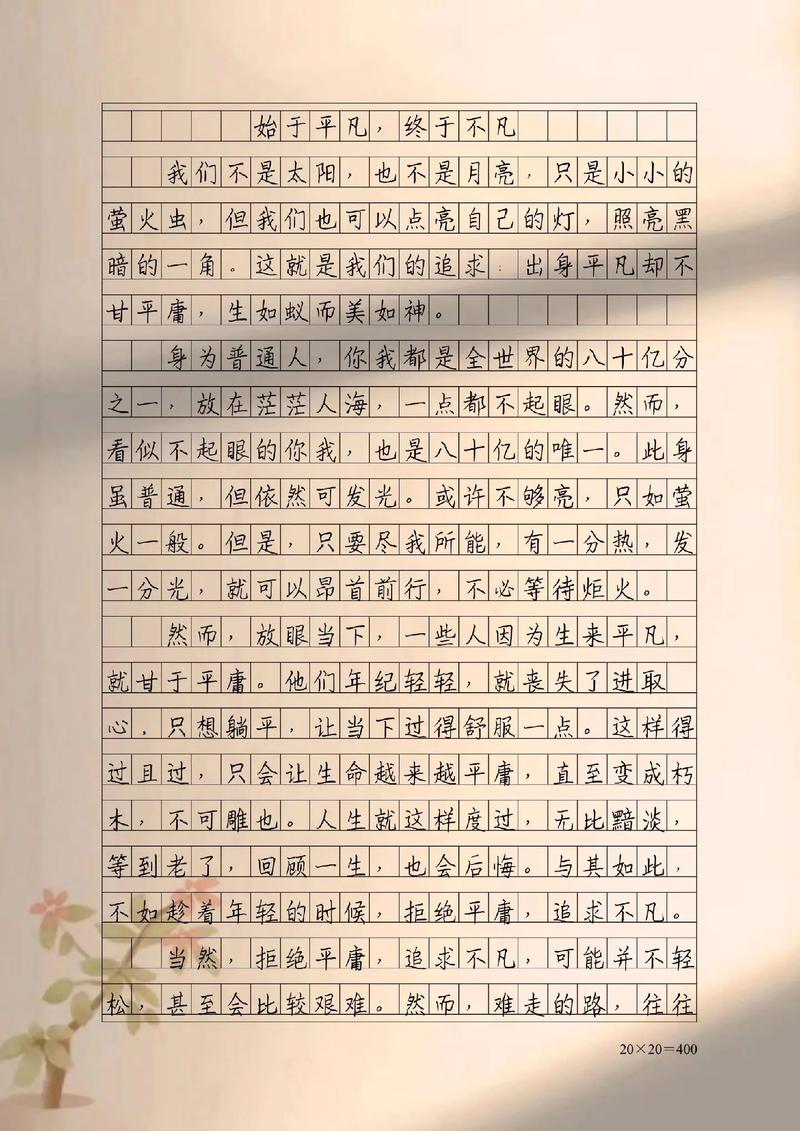 始于平凡，终于不凡
我们不是太阳，也不是月亮，只是小小的
萤火虫，但我们也可以点亮自己的灯，照亮黑
暗的一角。这就是我们的追求：出身平凡却不
甘平庸，生如蚁而美如神。
身为普通人，你我都是全世界的八十亿分
之一，放在茫茫人海，一点都不起眼。然而，
看似不起眼的你我，也是八十亿的唯一。此身
虽普通，但依然可发光。或许不够亮，只如萤
火一般。但是，只要尽我所能，有一分热，发
一分光，就可以昂首前行，不必等待炬火。
然而，放眼当下，一些人因为生来平凡，
就甘于平庸。他们年纪轻轻，就丧失了进取
心，只想躺平，让当下过得舒服一点。这样得
过且过，只会让生命越来越平庸，直至变成朽
木，不可雕也。人生就这样度过，无比黯淡，
等到老了，回顾一生，也会后悔。与其如此，
不如趁着年轻的时候，拒绝平庸，追求不凡。
当然，拒绝平庸，追求不凡，可能并不轻
松，甚至会比较艰难。然而，难走的路，往往
20×20=400